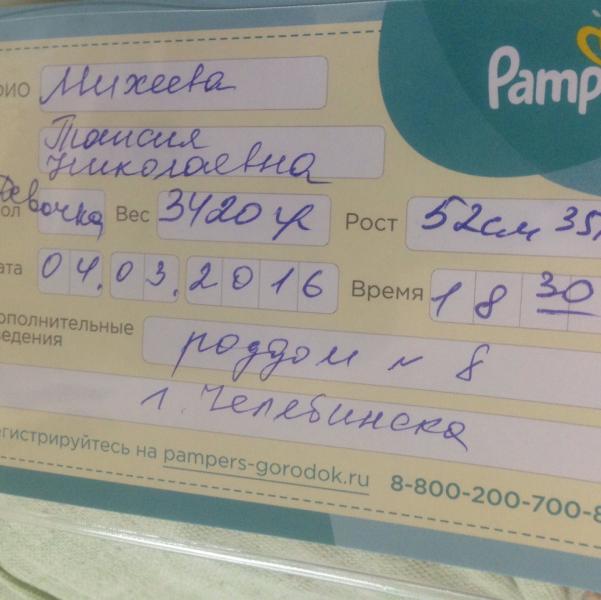 Pamp
ФИО Михеева
Таисия
Николаевна
Пол Девочка Вес 3420 гр Рост 52см 35
Дата 04.03.2016 Время 18 30
ополнительные
ведения
роддом № 8
г. Челябинска
егистрируйтесь на pampers-gorodok.ru 8-800-200-700-8